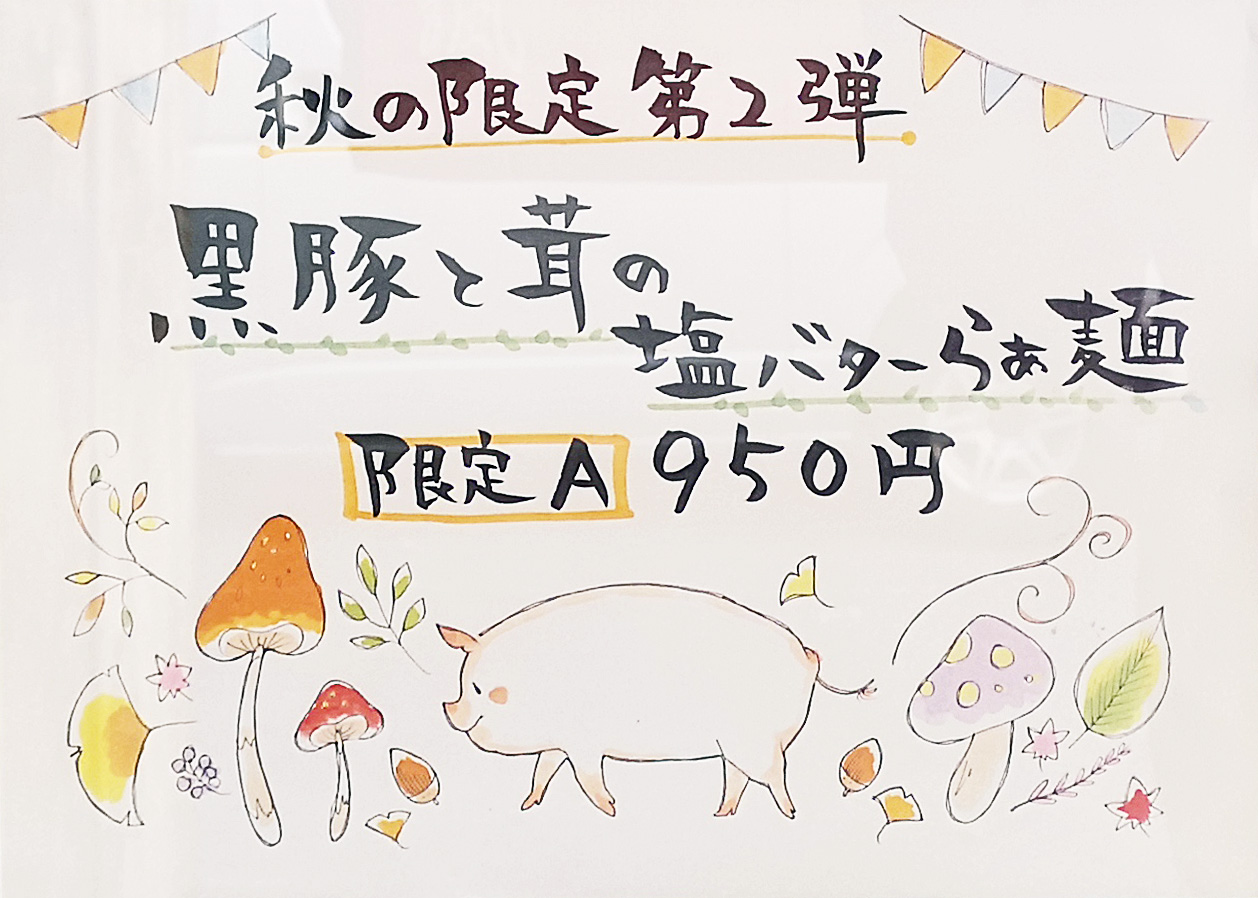 秋の限定第2弾
黒豚と茸の
塩バターらぁ麺
限定A 950円